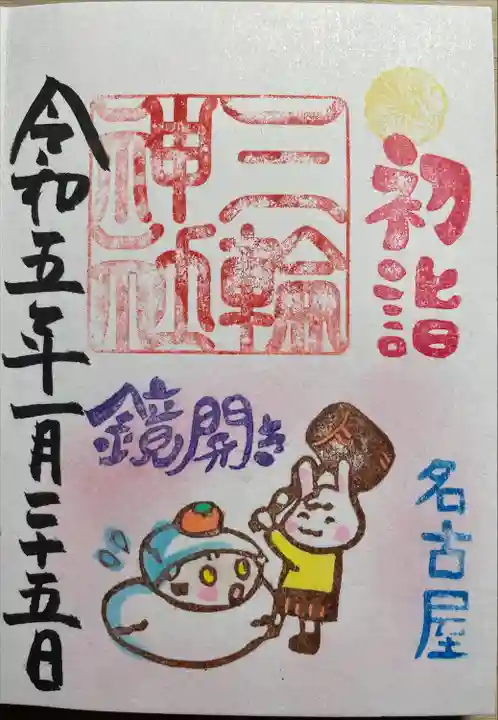 初詣
三輪
神社
鏡開き
名古屋
令和五年一月二十五日